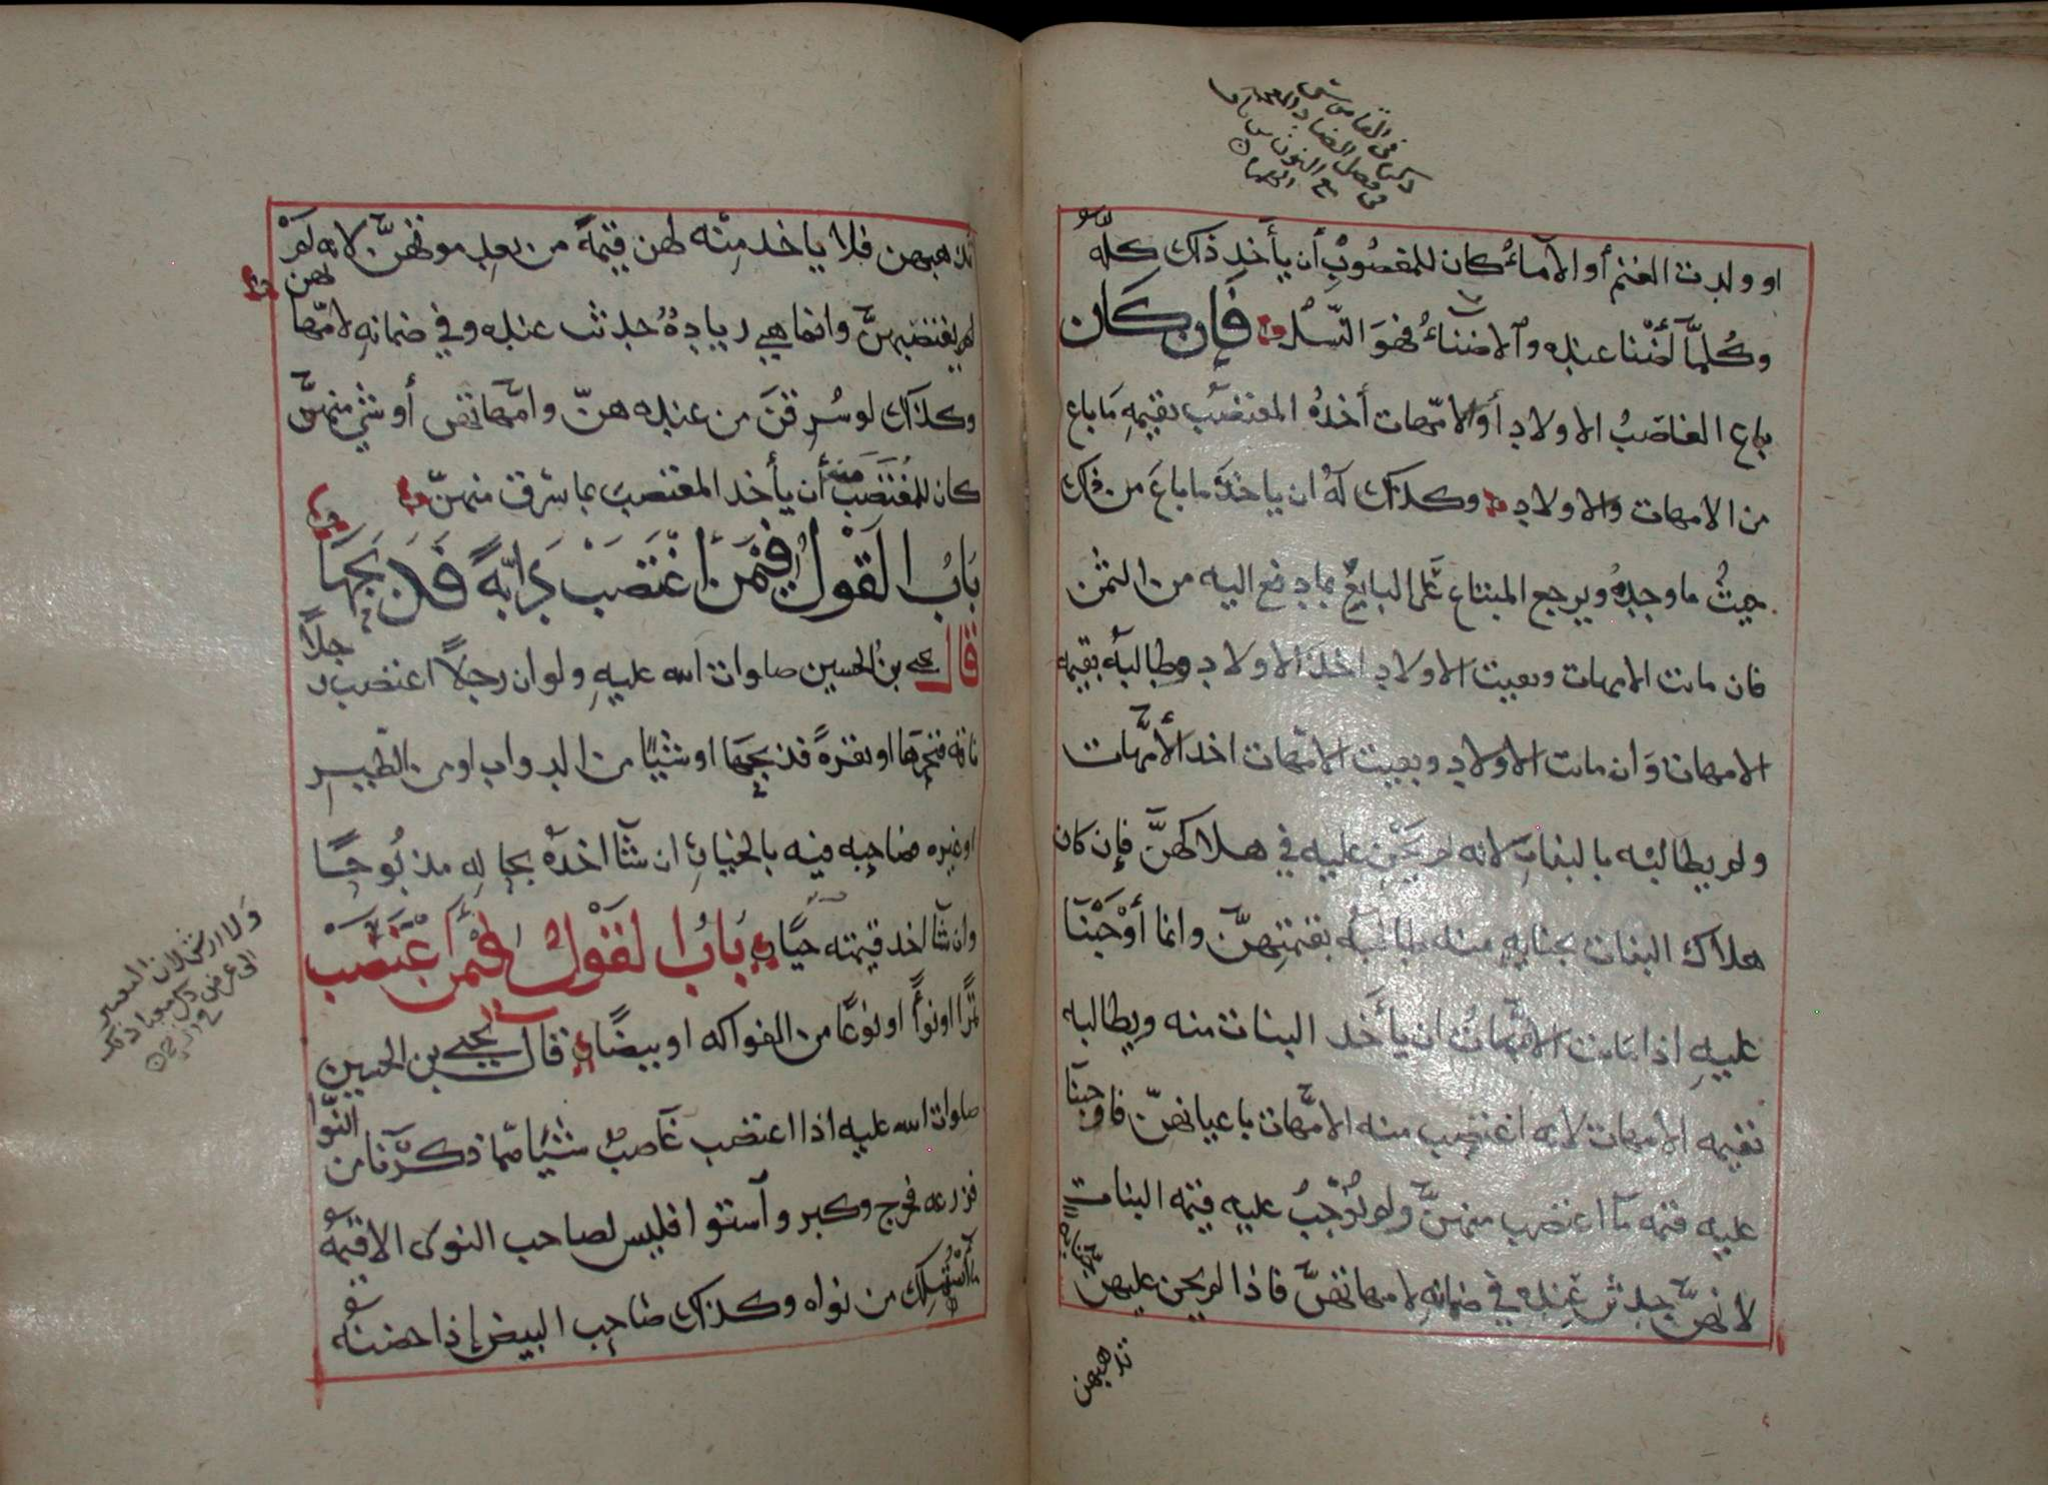 او ولدت الغنم أو الأماء كان للمغصوب أن يأخذ ذلك كله
وكلما أضننا عنده والاضناء فهو النسل فإن كان
باع الغاصب الاولاد أو الامهات أخذه المغتصب بقيمه ما باع
من الامهات والاولاد وكذلك له ان ياخذ ما باع من ذلك
حيث ما وجده ويرجع المبتاع على البايع بما دفع اليه من الثمن
فان ماتت الامهات وبقيت الاولاد اخذ الاولاد وطالبه بقيمه
الامهات وان ماتت الاولاد وبقيت الامهات اخذ الأمهات
ولم يطالبه بالبنات لانه لم يجن عليه في هلاكهن فإن كان
هلاك البنات بجنايه منه طالبه بقيمتهن وانما أوجبنا
عليه اذا ماتت الامهات ان يأخذ البنات منه ويطالبه
بقيمه الامهات لانه اغتصب منه الامهات باعيانهن فاوجبنا
عليه قيمه ما اغتصب منهن ولم نوجب عليه قيمه البنات
لانهن حدثن عنده في ضمانه لامهاتهن فاذا لم يجن عليهن جنايه
تذهبهن
تذهبهن فلا ياخذ منه لهن قيمة من بعد موتهن لانه لم
لم يغتصبهن وانما هي زيادة حدثت عنده وفي ضمانه لامها لهن
وكذلك لو سرقن من عنده هن وامهاتهن أو شي منهن
كان للمغتصب منه أن يأخذ المغتصب بما سرق منهن
باب القول فيمن اغتصب دابة فذبحها
قال يحيى بن الحسين صلوات الله عليه ولو ان رجلا اغتصب رجلا
ناقه فنحرها او بقرة فذبحها او شيئا من الدواب او من الطير
او غيره فصاحبه فيه بالخيار ان شآ اخذه بحاله مذبوحا
وان شآ اخذ قيمته حيا باب القول فيمن اغتصب
تمرا او نوا او نوعا من الفواكه او بيضا قال يحيى بن الحسين
صلوات الله عليه اذا اغتصب غاصب شيئا مما ذكرنا من النوا
فزرعه فخرج وكبر وآستوا فليس لصاحب النوى الا قيمه
ما أستهلك من نواه وكذلك صاحب البيض إذا حضنه